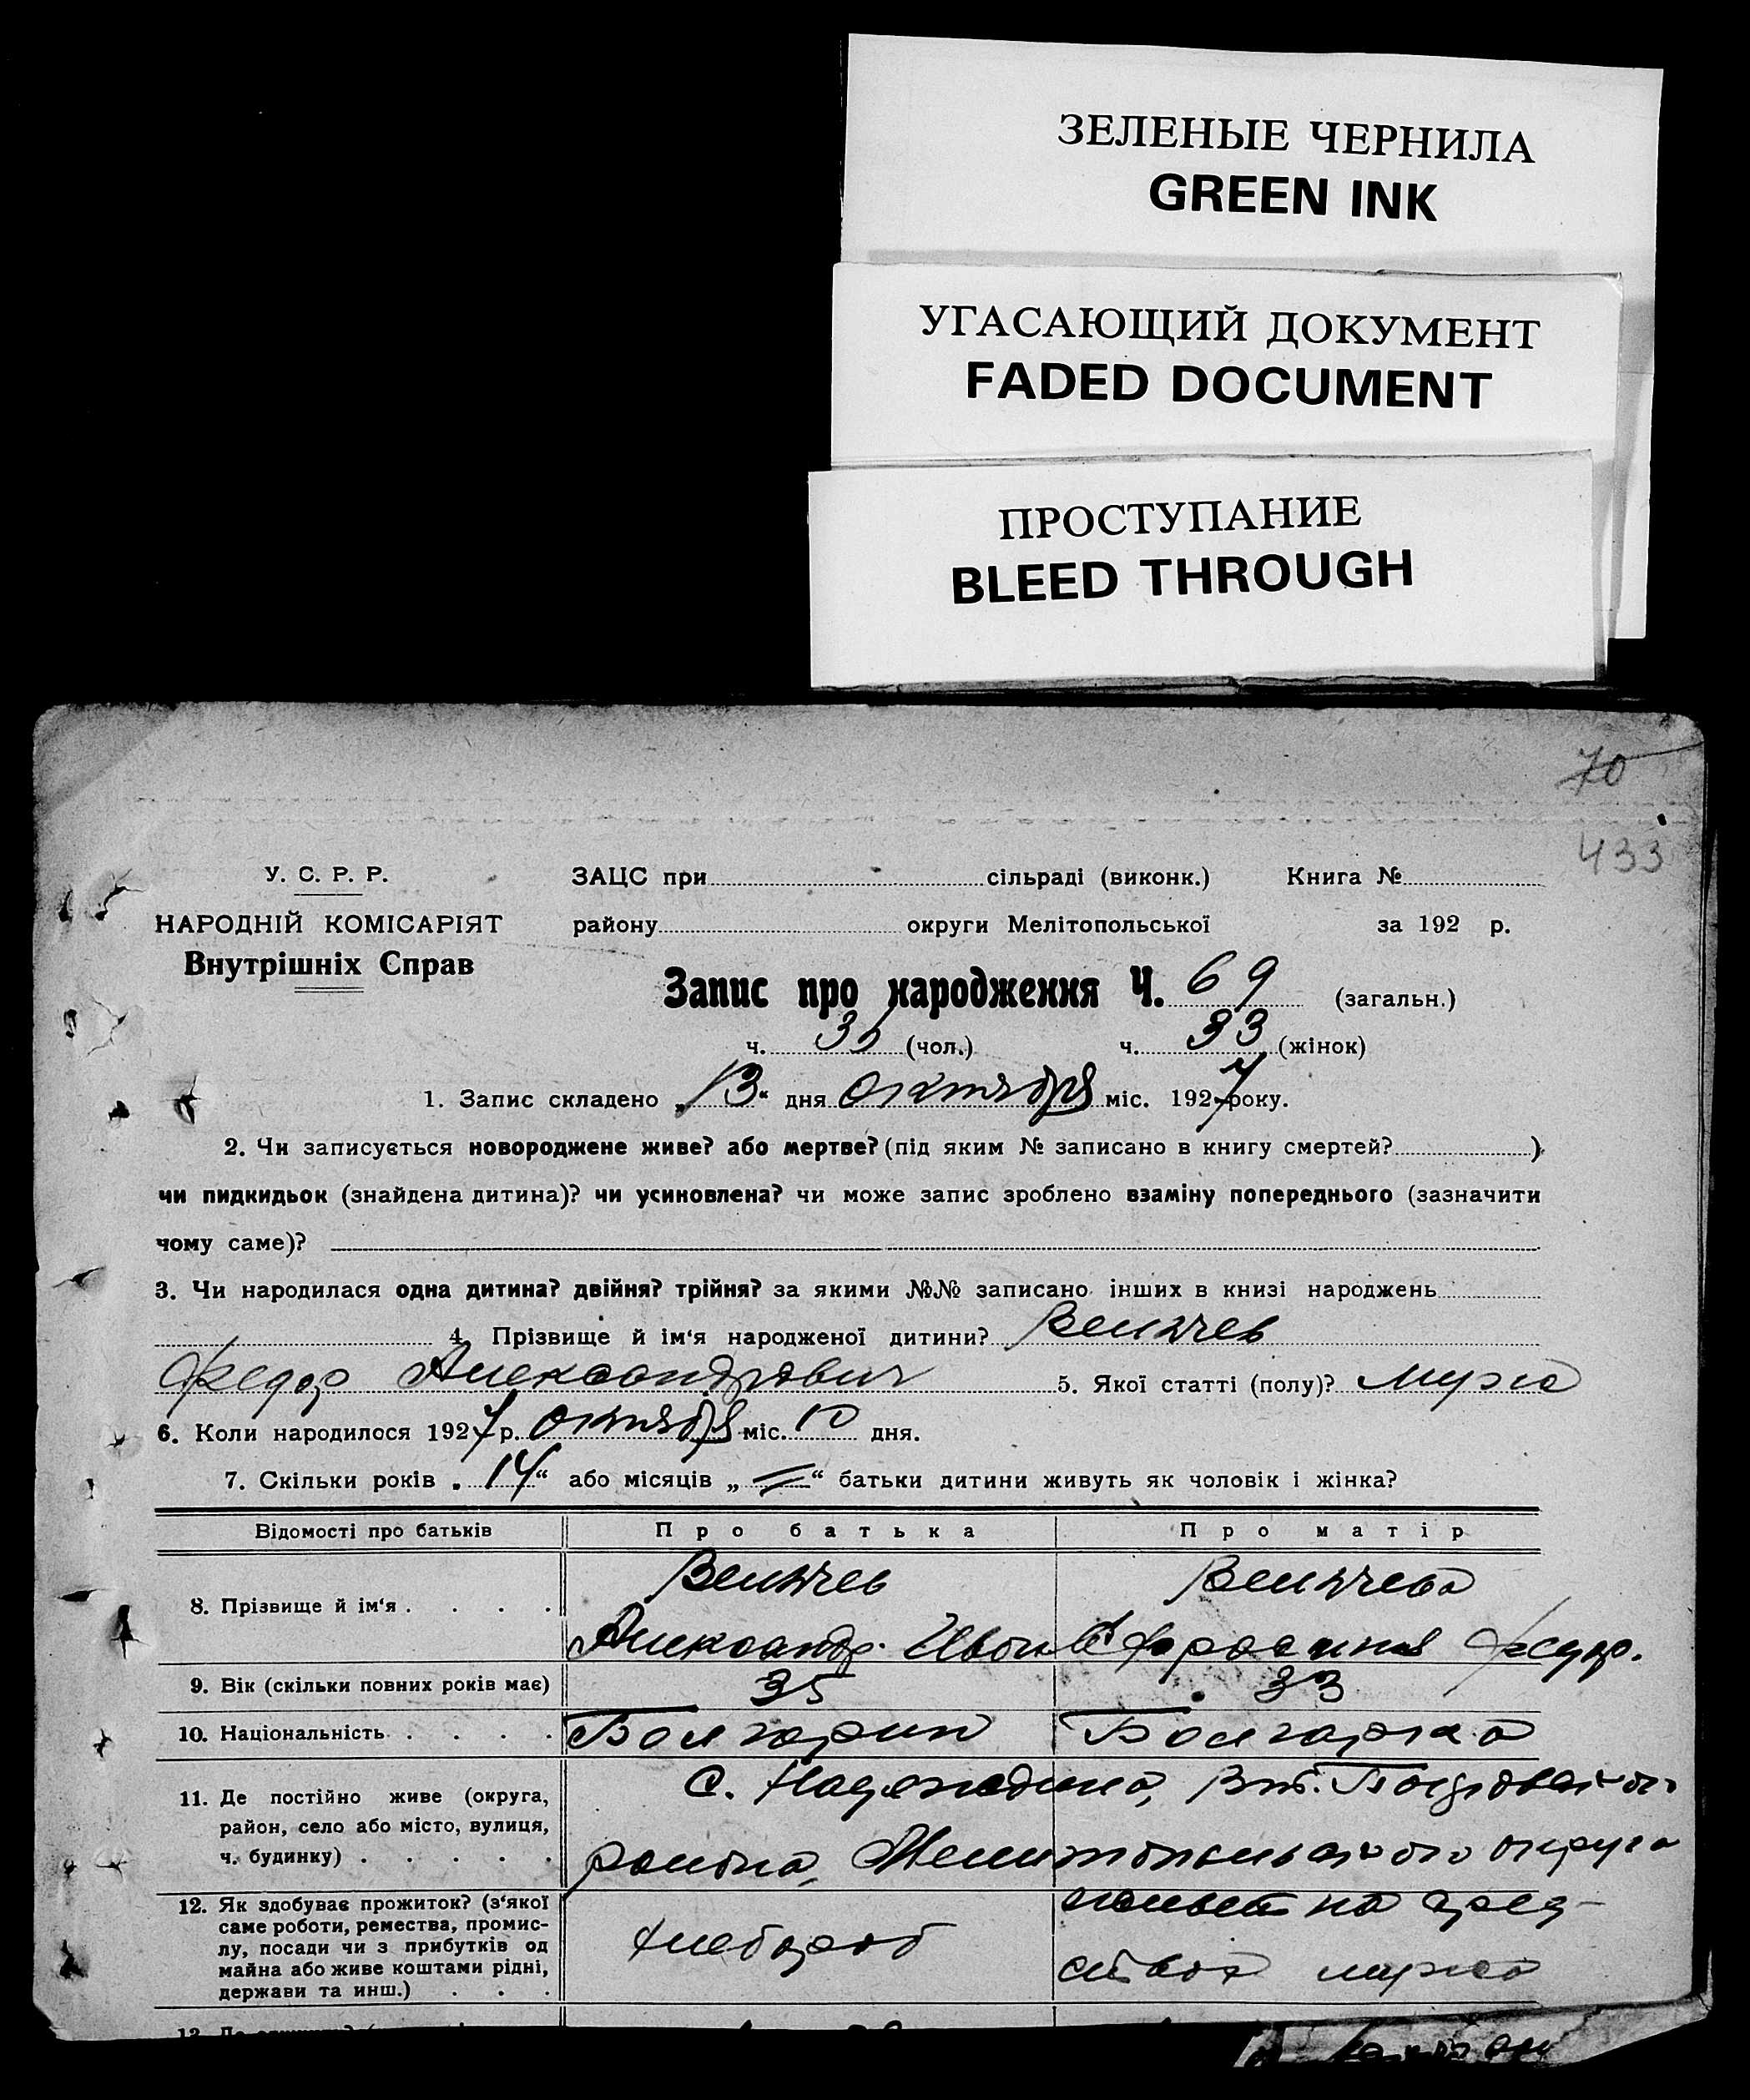 ЗЕЛЕНЫЕ ЧЕРНИЛА
GREEN INK
УГАСАЮЩИЙ ДОКУМЕНТ
FADED DOCUMENT
ПРОСТУПАНИЕ
BLEED THROUGH
70
433
У. С. Р. Р. ЗАЦС при сільраді (виконк.) Книга №
НАРОДНІЙ КОМІСАРІЯТ району округи Мелітопольської за 192 р.
Внутрішніх Справ
Запис про народження Ч. 69 (загальн.)
ч. (чол.) ч. 33 (жінок)
1. Запис складено „13“ дня октября міс. 1927 року.
2. Чи записується новороджене живе? або мертве? (під яким № записано в книгу смертей? )
чи пидкидьок (знайдена дитина)? чи усиновлена? чи може запис зроблено взаміну попереднього (зазначити
чому саме)?
3. Чи народилася одна дитина? двійня? трійня? за якими №№ записано інших в книзі народжень
4. Прізвище й ім‘я народженої дитини? Величев
Федор Александрович 5. Якої статті (полу)? Мужс
6. Коли народилося 1927 р. октября міс. 10 дня.
7. Скільки років „14“ або місяців „=“ батьки дитини живуть як чоловік і жінка?
Відомості про батьків Про батька Про матір
8. Прізвище й ім‘я . . . . Величев Величева
Александр Иван Ефросиния Федор.
9. Вік (скільки повних років має) 35 33
10. Національність . . . . Болгарин Болгарка
11. Де постійно живе (округа, С. Надеждино,
район, село або місто, вулиця,
ч. будинку) . . . . . района, Мелитопольского округа
12. Як здобуває прожиток? (з‘якої на сред-
саме роботи, ремества, промис-
лу, посади чи з прибутків од хлебороб
майна або живе коштами рідні, ства мужа
держави та инш.) . . .